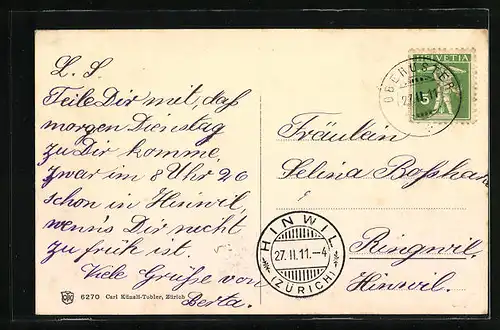 L. S.
Teile Dir mit, daß
morgen Dienstag
zu Dir komme,
zwar im 8 Uhr 26
schon in Hinwil,
wenn's Dir nicht
zu früh ist.
Viele Grüße von
Berta.
6270 Carl Künzli-Tobler, Zürich
HELVETIA
5
OBERUSTER
27.II.11
Fräulein
Selina Boßhard
Ringwil
Hinwil.
HINWIL
27.II.11.-4
(ZÜRICH)